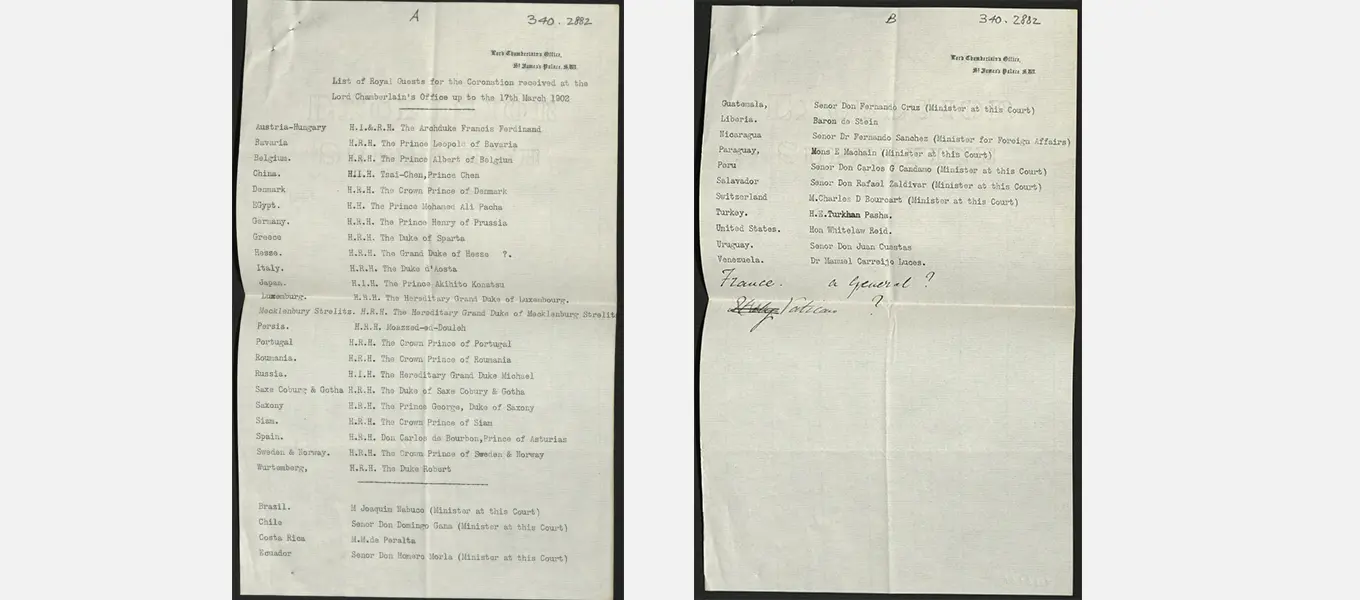 A
340.2882
Lord Chamberlain's Office,
St James's Palace, S.W.
List of Royal Guests for the Coronation received at the
Lord Chamberlain's Office up to the 17th March 1902
Austria-Hungary H.I.&.R.H. The Archduke Francis Ferdinand
Bavaria H.R.H. The Prince Leopold of Bavaria
Belgium. H.R.H. The Prince Albert of Belgium
China. H.I.H. Tsai-Chen,Prince Chen
Denmark H.R.H. The Crown Prince of Denmark
EGypt. H.H. The Prince Mohamed Ali Pacha
Germany. H.R.H. The Prince Henry of Prussia
Greece H.R.H. The Duke of Sparta
Hesse. H.R.H. The Grand Duke of Hesse ?.
Italy. H.R.H. The Duke d'Aosta
Japan. H.I.H. The Prince Akihito Komatsu
Luxemburg. H.R.H. The Hereditary Grand Duke of Luxembourg.
Mecklenbury Strelits. H.R.H. The Hereditary Grand Duke of Mecklenburg Strelits
Persia. H.R.H. Moazzed-ed-Douleh
Portugal H.R.H. The Crown Prince of Portugal
Roumania. H.R.H. The Crown Prince of Roumania
Russia. H.I.H. The Hereditary Grand Duke Michael
Saxe Coburg & Gotha H.R.H. The Duke of Saxe Cobury & Gotha
Saxony H.R.H. The Prince George, Duke of Saxony
Siam. H.R.H. The Crown Prince of Siam
Spain. H.R.H. Don Carlos de Bourbon,Prince of Asturias
Sweden & Norway. H.R.H. The Crown Prince of Sweden & Norway
Wurtemberg, H.R.H. The Duke Robert
Brazil. M Joaquim Nabuco (Minister at this Court)
Chile Senor Don Domingo Gana (Minister at this Court)
Costa Rica M.M.de Peralta
Ecuador Senor Don Homero Morla (Minister at this Court)
B
340.2882
Lord Chamberlain's Office,
St James's Palace, S.W.
Guatemala, Senor Don Fernando Cruz (Minister at this Court)
Liberia. Baron de Stein
Nicaragua Senor Dr Fernando Sanchez (Minister for Foreign Affairs)
Paraguay, Mons E Machain (Minister at this Court)
Peru Senor Don Carlos G Candamo (Minister at this Court)
Salavador Senor Don Rafael Zaldivar (Minister at this Court)
Switzerland M.Charles D Bourcart (Minister at this Court)
Turkey. H.E.Turkhan Pasha.
United States. Hon Whitelaw Reid.
Uruguay. Senor Don Juan Cuestas
Venezuela. Dr Manuel Carreijo Luces.
France. a General ?
Vatican ?